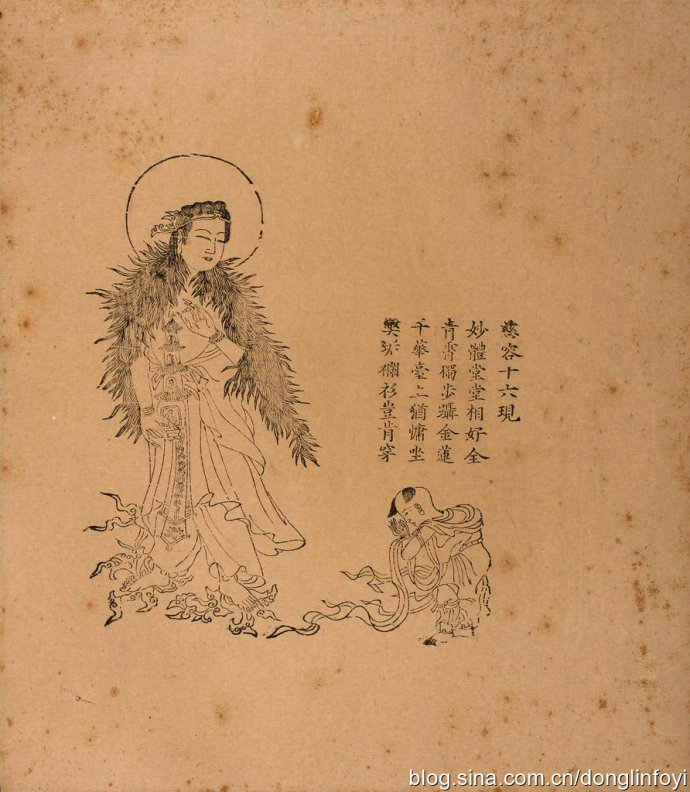 慈容十六現
妙體堂堂相好全
青霄獨步躡金蓮
千華臺上猶慵坐
襴衫豈肯穿
blog.sina.com.cn/donglinfoyi